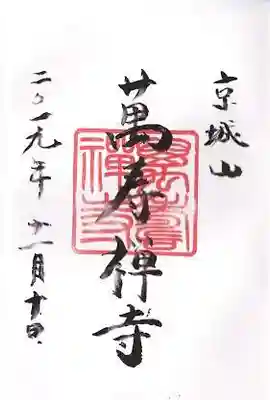 京城山
萬寿禅寺
二〇一九年 十一月十日